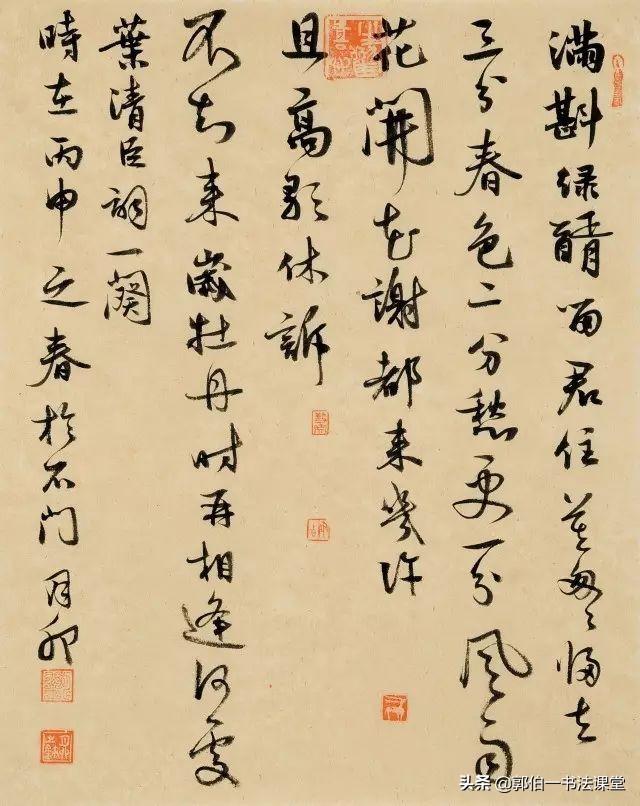 滿斟绿醑留君住莫匆匆歸去
三分春色二分愁更一分風雨
花開花謝都来幾许
且高歌休訴
不知来歲牡丹时再相逢何處
葉清臣詞一闋
時在丙申之春於石门
头条 @郭伯一书法课堂